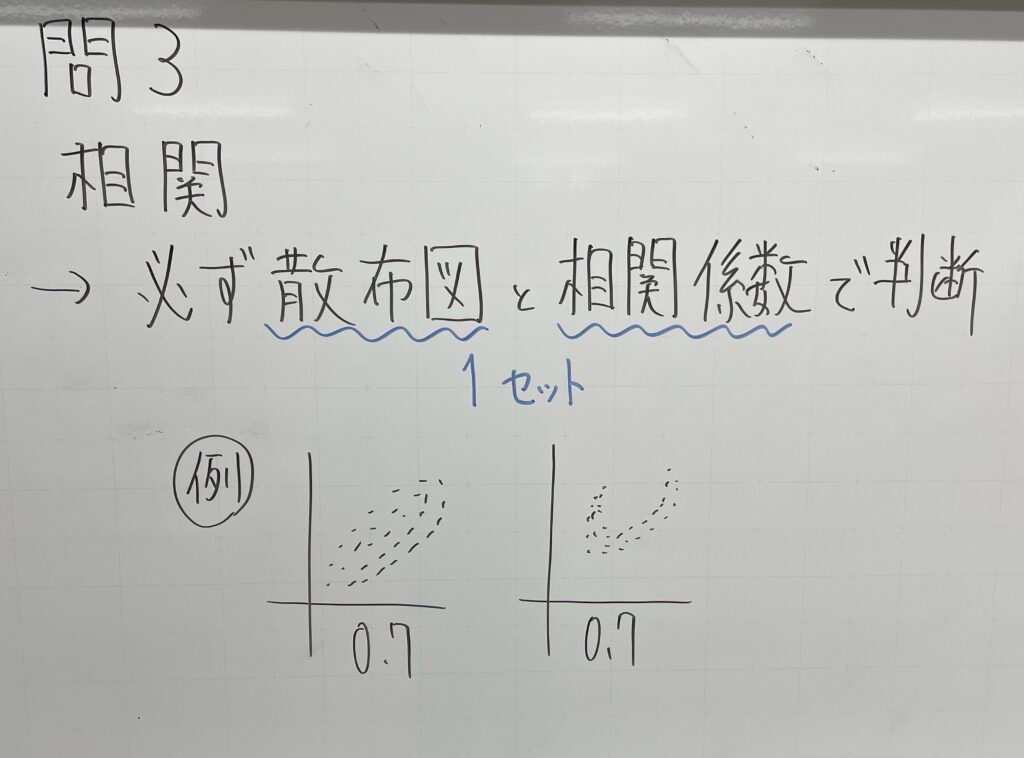 問3
相関
→ 必ず散布図と相関係数で判断
1セット
例
0.7
0.7